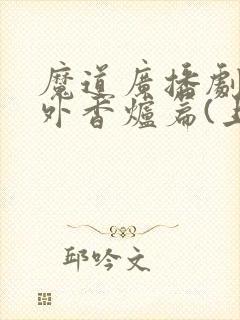 魔道廣播劇
外香爐篇(
邱吟文